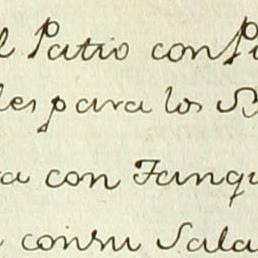 l Patio con Pi
les para los S
a con Tanqu
consu Sala